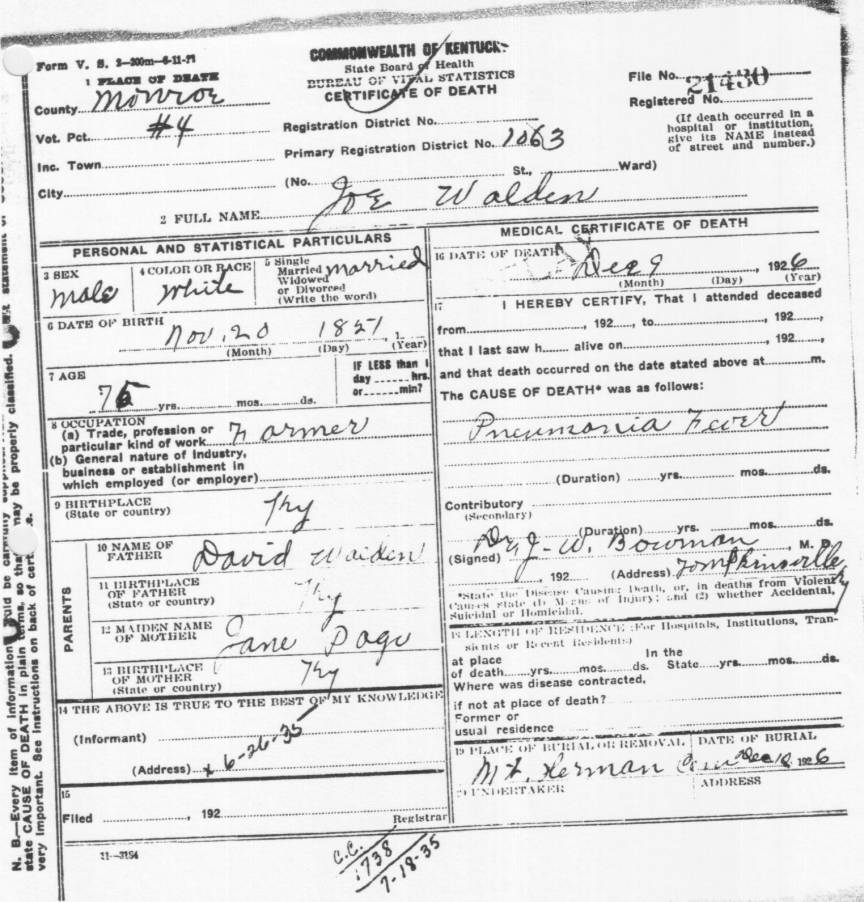 Form V. S. 2-200m-6-11-21
COMMONWEALTH OF KENTUCKY
State Board of Health
BUREAU OF VITAL STATISTICS
CERTIFICATE OF DEATH
File No. 21430
Registered No.
(If death occurred in a hospital or institution, give its NAME instead of street and number.)
1 PLACE OF DEATH
County Monroe
Vot. Pct. #4
Inc. Town
City
Registration District No.
Primary Registration District No. 1063
(No. St., Ward)
2 FULL NAME Joe Walden
PERSONAL AND STATISTICAL PARTICULARS
3 SEX
Male
4 COLOR OR RACE
White
5 Single
Married
Widowed
or Divorced
(Write the word)
Married
6 DATE OF BIRTH
Nov. 20 1851, 1
(Month) (Day) (Year)
7 AGE
75 yrs. mos. ds.
IF LESS than 1
day hrs.
or min?
8 OCCUPATION
(a) Trade, profession or
particular kind of work Farmer
(b) General nature of Industry,
business or establishment in
which employed (or employer)
9 BIRTHPLACE
(State or country) Ky
PARENTS
10 NAME OF
FATHER David Walden
11 BIRTHPLACE
OF FATHER
(State or country) Ky
12 MAIDEN NAME
OF MOTHER Jane Page
13 BIRTHPLACE
OF MOTHER
(State or country) Ky
14 THE ABOVE IS TRUE TO THE BEST OF MY KNOWLEDGE
(Informant)
(Address) x 6-26-35
15
Filed , 192
Registrar
11-3184
C.C.
1738
7-18-35
MEDICAL CERTIFICATE OF DEATH
16 DATE OF DEATH
Dec 9, 1926
(Month) (Day) (Year)
17 I HEREBY CERTIFY, That I attended deceased
from , 192 , to , 192 ,
that I last saw h alive on , 192 ,
and that death occurred on the date stated above at m.
The CAUSE OF DEATH* was as follows:
Pneumonia Fever
(Duration) yrs. mos. ds.
Contributory
(Secondary)
(Duration) yrs. mos. ds.
(Signed) Dr J. W. Bowman, M. D.
, 192 (Address) Tompkinsville Ky
*State the Disease Causing Death, or, in deaths from Violent
Causes state (1) Means of Injury; and (2) whether Accidental,
Suicidal or Homicidal.
18 LENGTH OF RESIDENCE (For Hospitals, Institutions, Tran-
sients or Recent Residents)
at place In the
of death yrs. mos. ds. State yrs. mos. ds.
Where was disease contracted,
if not at place of death?
Former or
usual residence
19 PLACE OF BURIAL OR REMOVAL
Mt. Herman Cem
DATE OF BURIAL
Dec 10, 1926
20 UNDERTAKER
ADDRESS
N. B.—Every item of information should be carefully supplied.
state CAUSE OF DEATH in plain terms, so that may be properly classified. statement of
very important. See instructions on back of cert